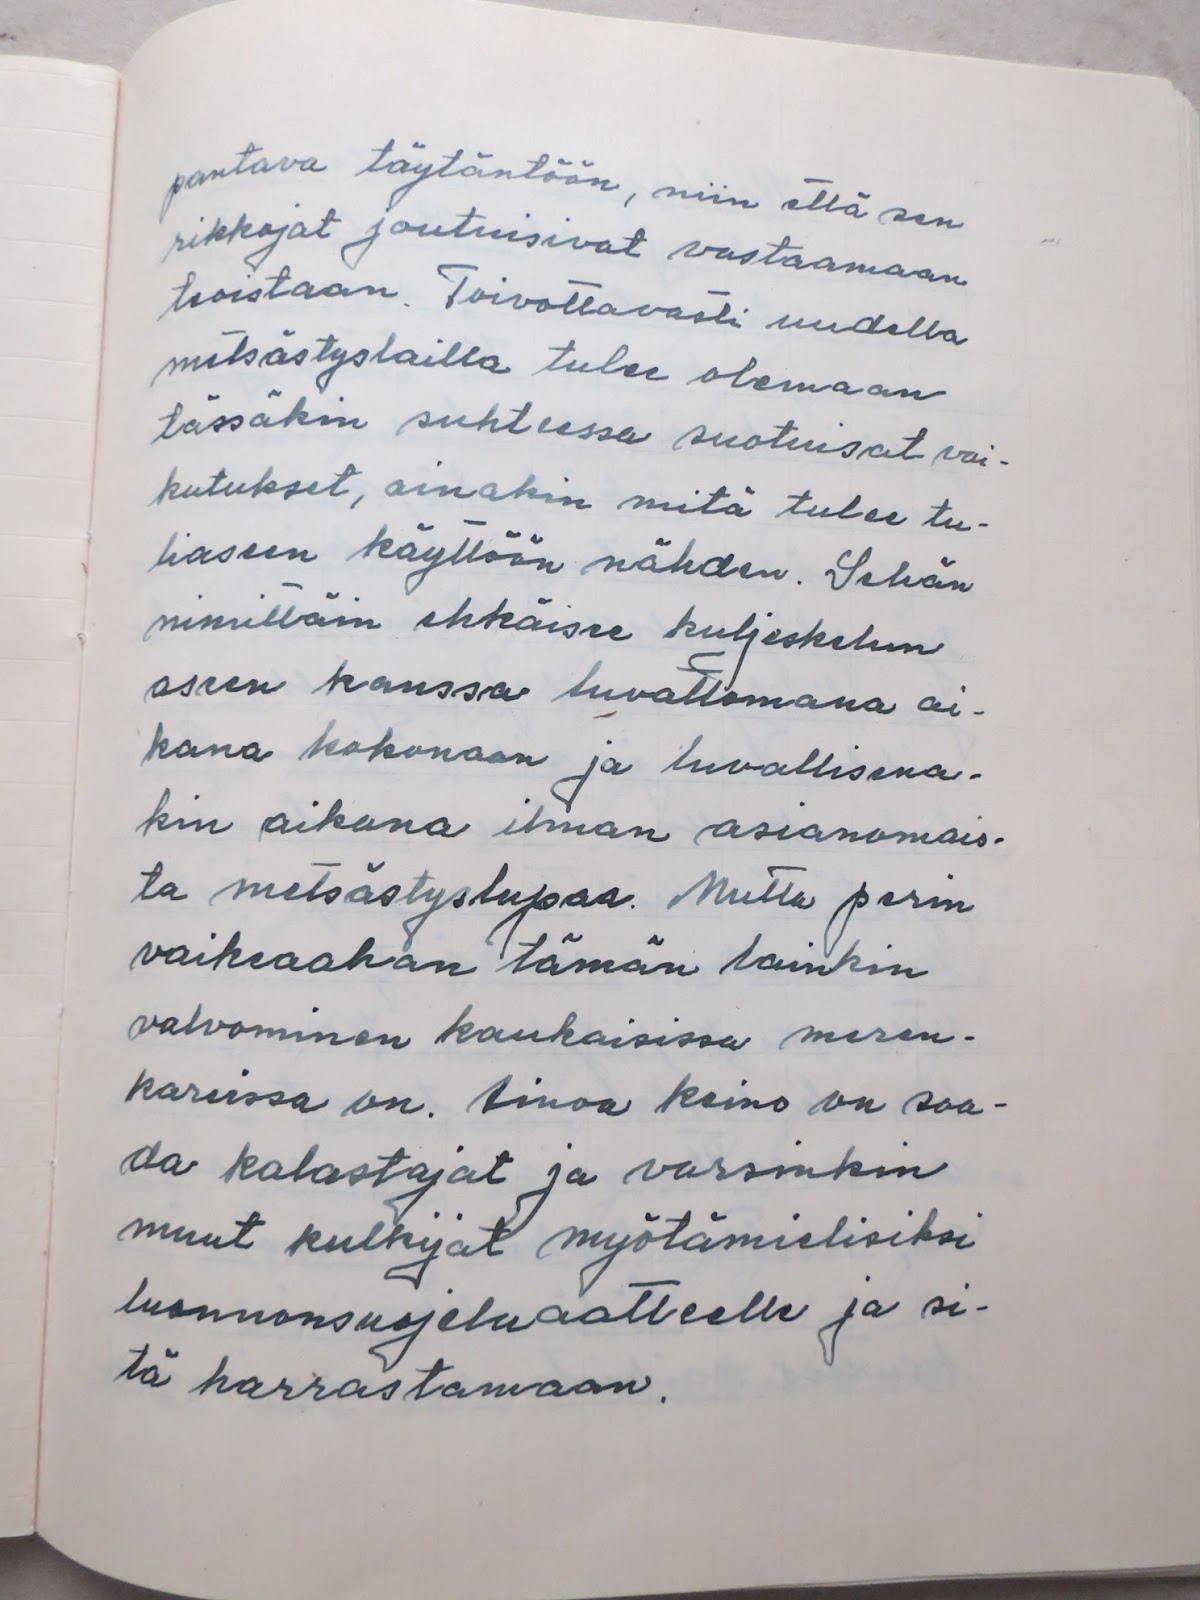 pantava täytäntöön, niin että sen
rikkojat joutuisivat vastaamaan
teoistaan. Toivottavasti uudella
metsästyslailla tulee olemaan
tässäkin suhteessa suotuisat vai-
kutukset, ainakin mitä tulee tu-
liaseen käyttöön nähden. Sehän
nimittäin ehkäisee kuljeskelun
aseen kanssa luvattomana ai-
kana kokonaan ja luvallisena-
kin aikana ilman asianomais-
ta metsästyslupaa. Mutta perin
vaikeaahan tämän lainkin
valvominen kaukaisissa meren-
kareissa on. Ainoa keino on saa-
da kalastajat ja varsinkin
muut kulkijat myötämielisiksi
luonnonsuojeluaatteelle ja si-
tä harrastamaan.